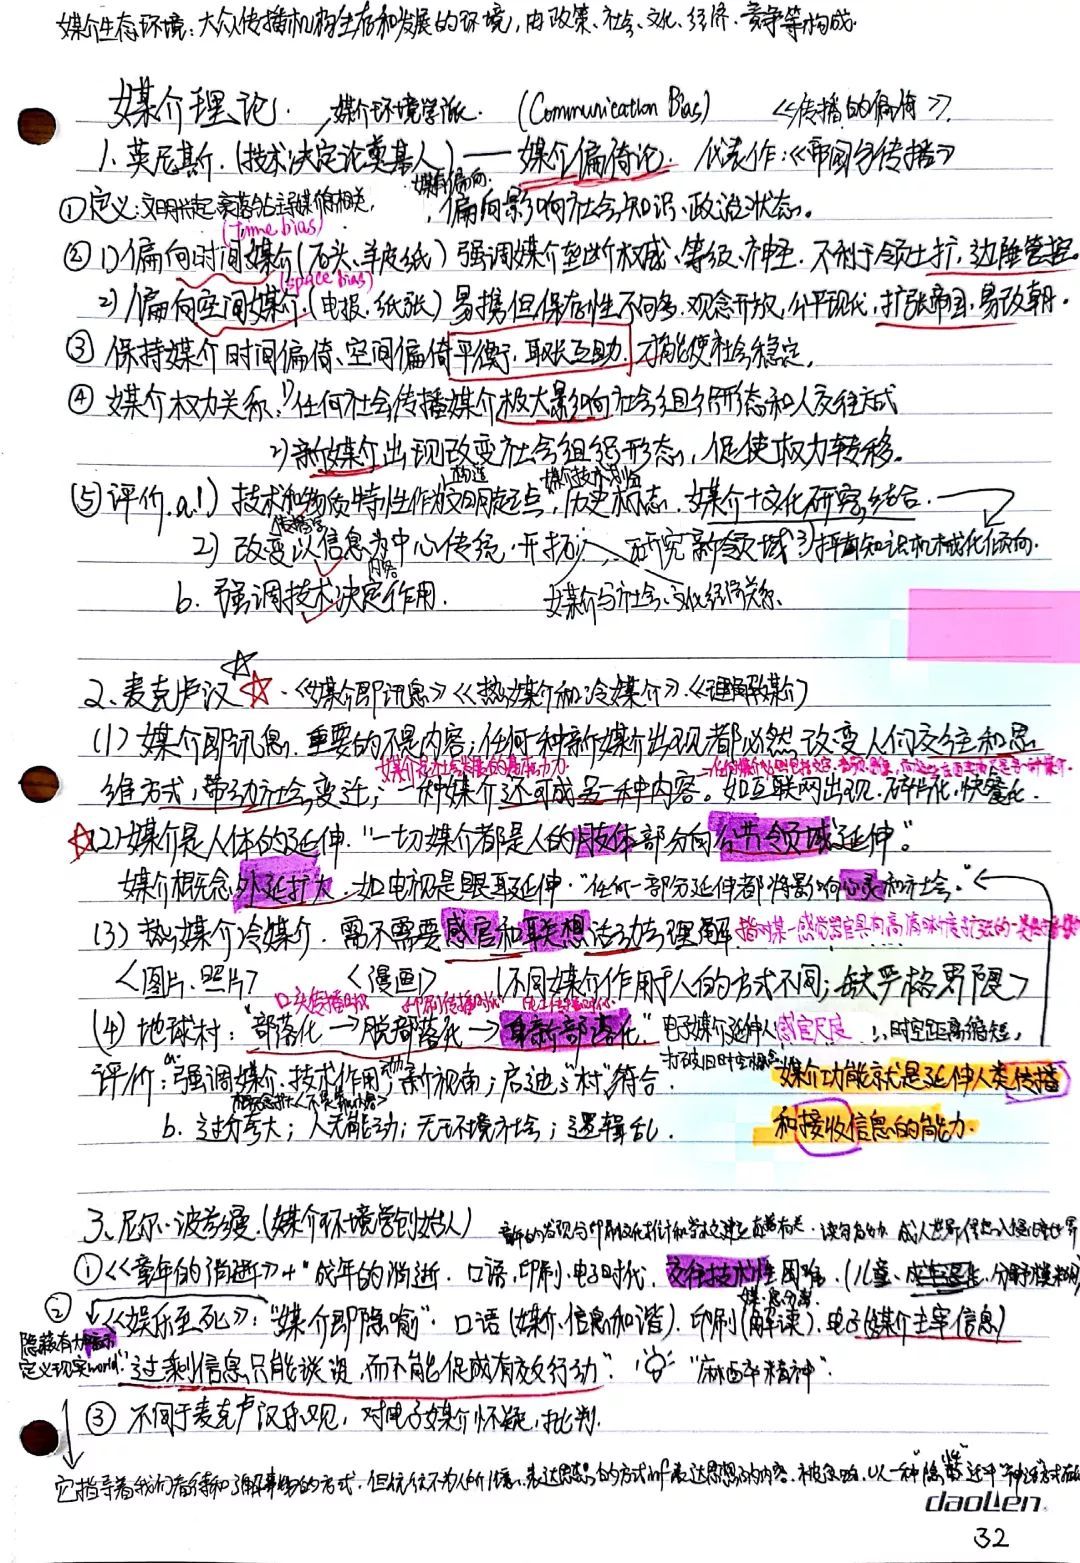 媒介生存环境:大众传播机构生存和发展的环境,由政策、社会、文化、经济、竞争等构成.
媒介理论. 媒介环境学派. (Communication Bias) 《传播的偏倚》.
1、英尼斯.(技术决定论奠基人)——媒介偏倚论. 代表作:《帝国与传播》
媒介有偏向.
①定义:文明兴起、衰落与主导媒介相关. ,偏向影响社会知识、政治状态。
(time bias)
②1)偏向时间媒介(石头、羊皮纸)强调媒介垄断权威、等级、神圣.不利于领土扩,边陲管控.
(space bias)
2)偏向空间媒介.(电报、纸张)易携但保存性不何多.观念开放,公平现代,扩张帝国.易改朝.
③保持媒介时间偏倚、空间偏倚平衡,取长互助.才能使社会稳定.
④媒介权力关系.1)任何社会传播媒介极大影响社会组织形态和人交往方式
2)新媒介出现改变社会组织形态,促使权力转移。
⑤评价.a.1)技术和物质特性作为起点,历史 .媒介+文化研究结合.
传播学
2)改变以信息为中心传统.开拓 研究新领域 3)抨击知识机械化倾向.
内容
b.强调技术决定作用. 媒介与社会、文化经济关系.
2、麦克卢汉 .《媒介即讯息》《热媒介和冷媒介》.《理解媒介》
(1)媒介即讯息.重要的不是内容;任何一种新媒介出现都必然改变人们交往和思
媒介是社会发展的基本动力
维方式,带动社会变迁;一种媒介还可成另一种内容。如互联网出现.碎片化,快餐化.
(2)媒介是人体的延伸."一切媒介都是人的肢体部分向公共领域延伸。"
媒介概念外延扩大.如电视是眼耳延伸."任何一部分延伸都将影响心灵和社会."
(3)热媒介冷媒介.需不需要感官和联想活动与理解.指对某一感觉器官具有高清晰度扩张的一
<图片.照片> <漫画> (不同媒介作用于人的方式不同;缺严格界限>
口头传播时代 印刷传播时代 电子传播时代
(4)地球村:"部落化→脱部落化→重新部落化" 电子媒介延伸人感官尺度 ∴时空距离缩短,
打破旧时空概念
评价:a.强调媒介.技术作用;新视角;启迪;"村"符合. 媒介功能就是延伸人类传播
b.过分夸大;人无能动;无环境社会;逻辑乱. 和接收信息的能力.
3、尼尔·波兹曼.(媒介环境学创始人)
①《童年的消逝》+"成年的消逝.口语,印刷.电子时代.
②《娱乐至死》:"媒介即隐喻".口语(媒介、信息和谐).印刷(解读).电子(媒介主宰信息)
隐蔽有力
定义现实world "过剩信息只能谈说,而不能促成有效行动". "麻西卒精神".
③不同于麦克卢汉乐观,对电子媒介怀疑,批判.
它指导着我们看待和了解事物的方式.但往往不为人所注意.表达思想的方式inf表达思想的内容.
daolen
32